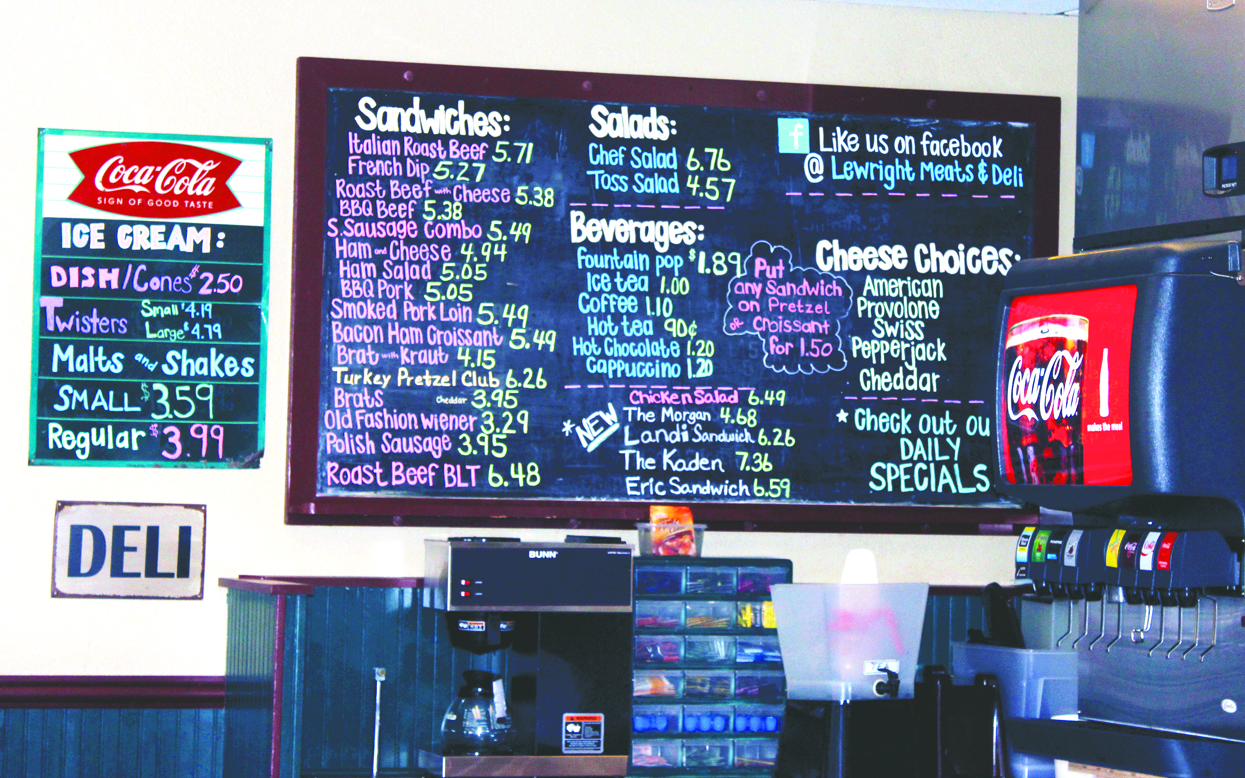 Coca-Cola
SIGN OF GOOD TASTE
ICE CREAM:
DISH/Cones $2.50
Twisters Small $4.19
Large $4.79
Malts and Shakes
SMALL $3.59
Regular $3.99
DELI
Sandwiches:
Italian Roast Beef 5.71
French Dip 5.27
Roast Beef with Cheese 5.38
BBQ Beef 5.38
S.Sausage Combo 5.49
Ham and Cheese 4.94
Ham Salad 5.05
BBQ Pork 5.05
Smoked Pork Loin 5.49
Bacon Ham Croissant 5.49
Brat with Kraut 4.15
Turkey Pretzel Club 6.26
Brats Cheddar 3.95
Old Fashion wiener 3.29
Polish Sausage 3.95
Roast Beef BLT 6.48
Salads:
Chef Salad 6.76
Toss Salad 4.57
Beverages:
fountain pop $1.89
Ice tea 1.00
Coffee 1.10
Hot tea 90¢
Hot Chocolate 1.20
Cappuccino 1.20
Put
any Sandwich
on Pretzel
or Croissant
for 1.50
*NEW
Chicken Salad 6.49
The Morgan 4.68
Landi Sandwich 6.26
The Kaden 7.36
Eric Sandwich 6.59
f Like us on facebook
@ Lewright Meats & Deli
Cheese Choices:
American
Provolone
Swiss
Pepperjack
Cheddar
* Check out ou
DAILY
SPECIALS
BUNN
Coca-Cola
makes the meal